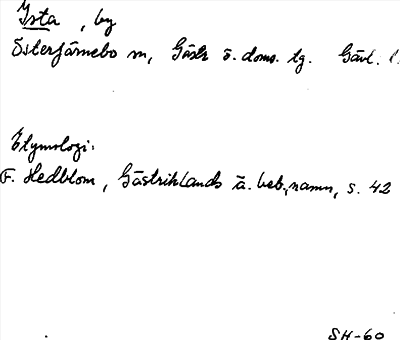 Ysta, by
Österfärnebo sn, Gästr ö. doms. tg. Gävl. l.
Etymologi:
F. Hedblom, Gästriklands ä. beb.namn, s. 42
SH-60